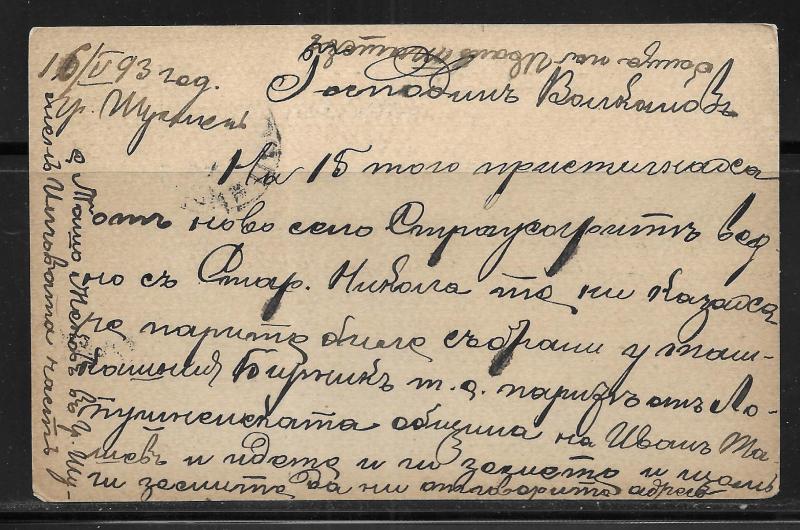 16/V 93 год.
гр. Шуменъ
Господинъ Волкановъ
На 15 того пристигнаха
отъ ново село Страусоритъ вед-
но съ Стар. Никола та ни казаха
че парите биле събрани у там-
кашния Бирникъ т. е. паритъ отъ Ло-
пушенската община на Иванъ Та-
шевъ и идете и ги земете и щомъ
ги земите да ни отговорите адресъ
Иванъ Ташевъ
въ гр. Шу-
менъ частъ